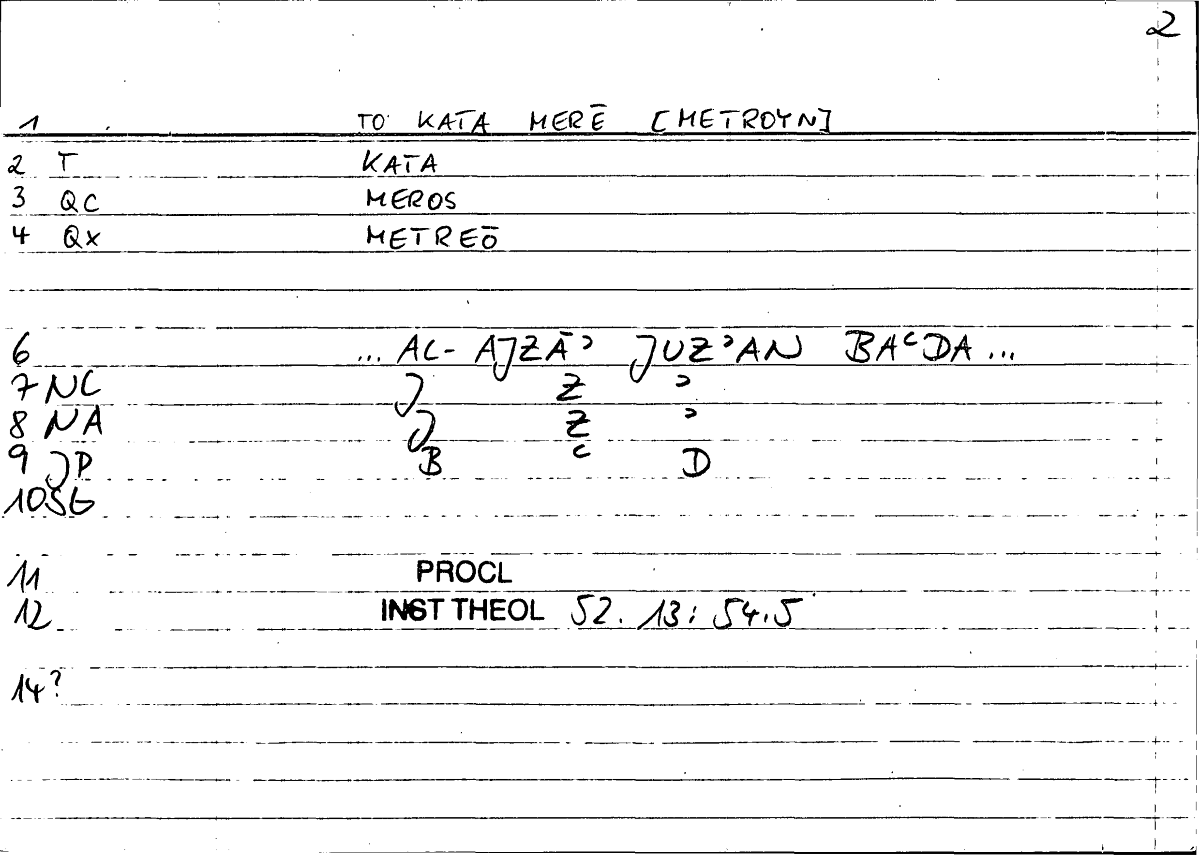 2
1 TO KATA MERĒ [METROYN]
2 T KATA
3 QC MEROS
4 QX METREŌ
6 ... AL- AJZĀʾ JUZʾAN BAʿDA ...
7 NC J Z ʾ
8 NA J Z ʾ
9 JP B ʿ D
10 SG
11 PROCL
12 INST THEOL 52. 13: 54.5
14?